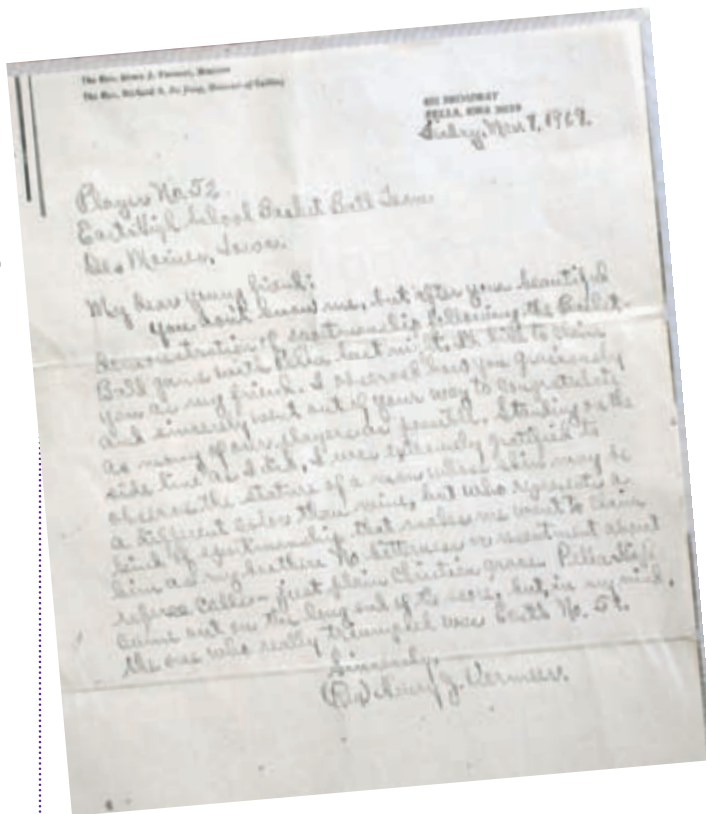 The Rev. Henry J. Vermeer, Minister
The Rev. Richard A. De Jong, Minister of Calling
BROADWAY
PELLA, IOWA 50219
Friday, Mar 7, 1969.
Player No. 52
East High School Basket Ball Team
Des Moines, Iowa.
My dear young friend:
You don't know me, but after your beautiful
demonstration of sportsmanship following the Basket
Ball game with Pella last night, I'd like to claim
you as my friend. I observed how you graciously
and sincerely went out of your way to congratulate
as many of our players as possible. Standing on the
side line as I did, I was extremely gratified to
observe the stature of a man whose skin may be
a different color than mine, but who represents a
kind of sportsmanship that makes me want to claim
him as my brother. No bitterness or resentment about
referee calls – just plain Christian grace. Pella
came out on the long end of the score, but, in my mind,
the one who really triumphed was East's No. 52.
Sincerely,
(Rev) Henry J. Vermeer.